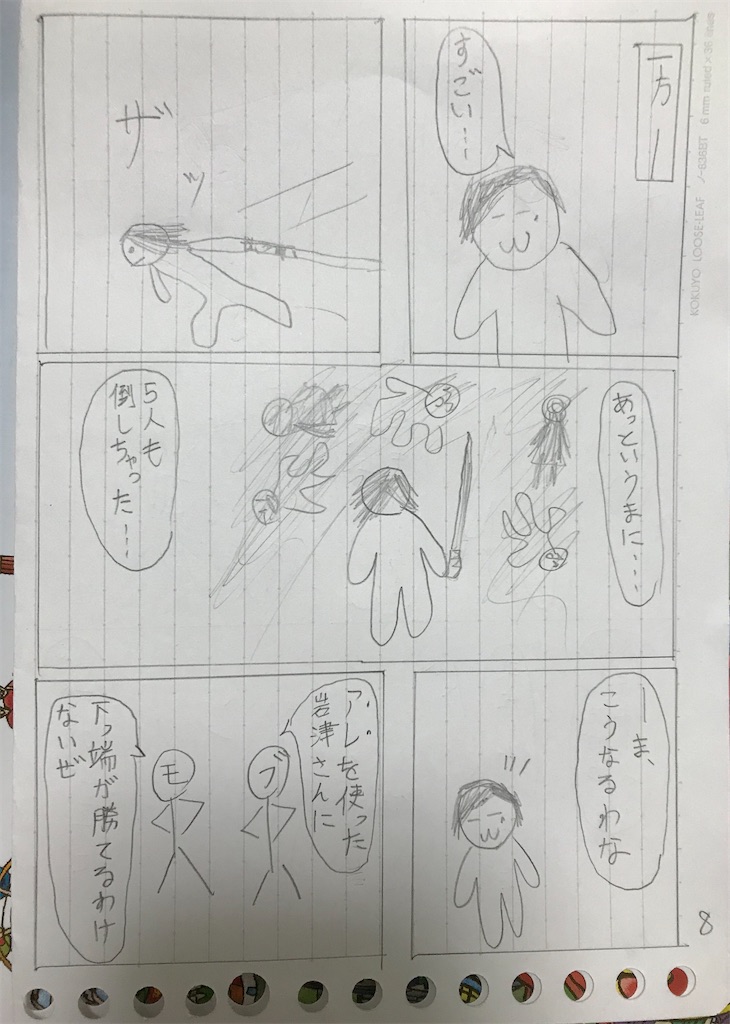 一方ー
すごい…
ザッ
あっというまに…
5人も
倒しちゃった…
ーま、
こうなるわな
アレを使った
岩津さんに
ブ
モ
下っ端が勝てるわけ
ないぜ
8
KOKUYO LOOSE-LEAF ノ-836BT 6 mm ruled × 36 lines